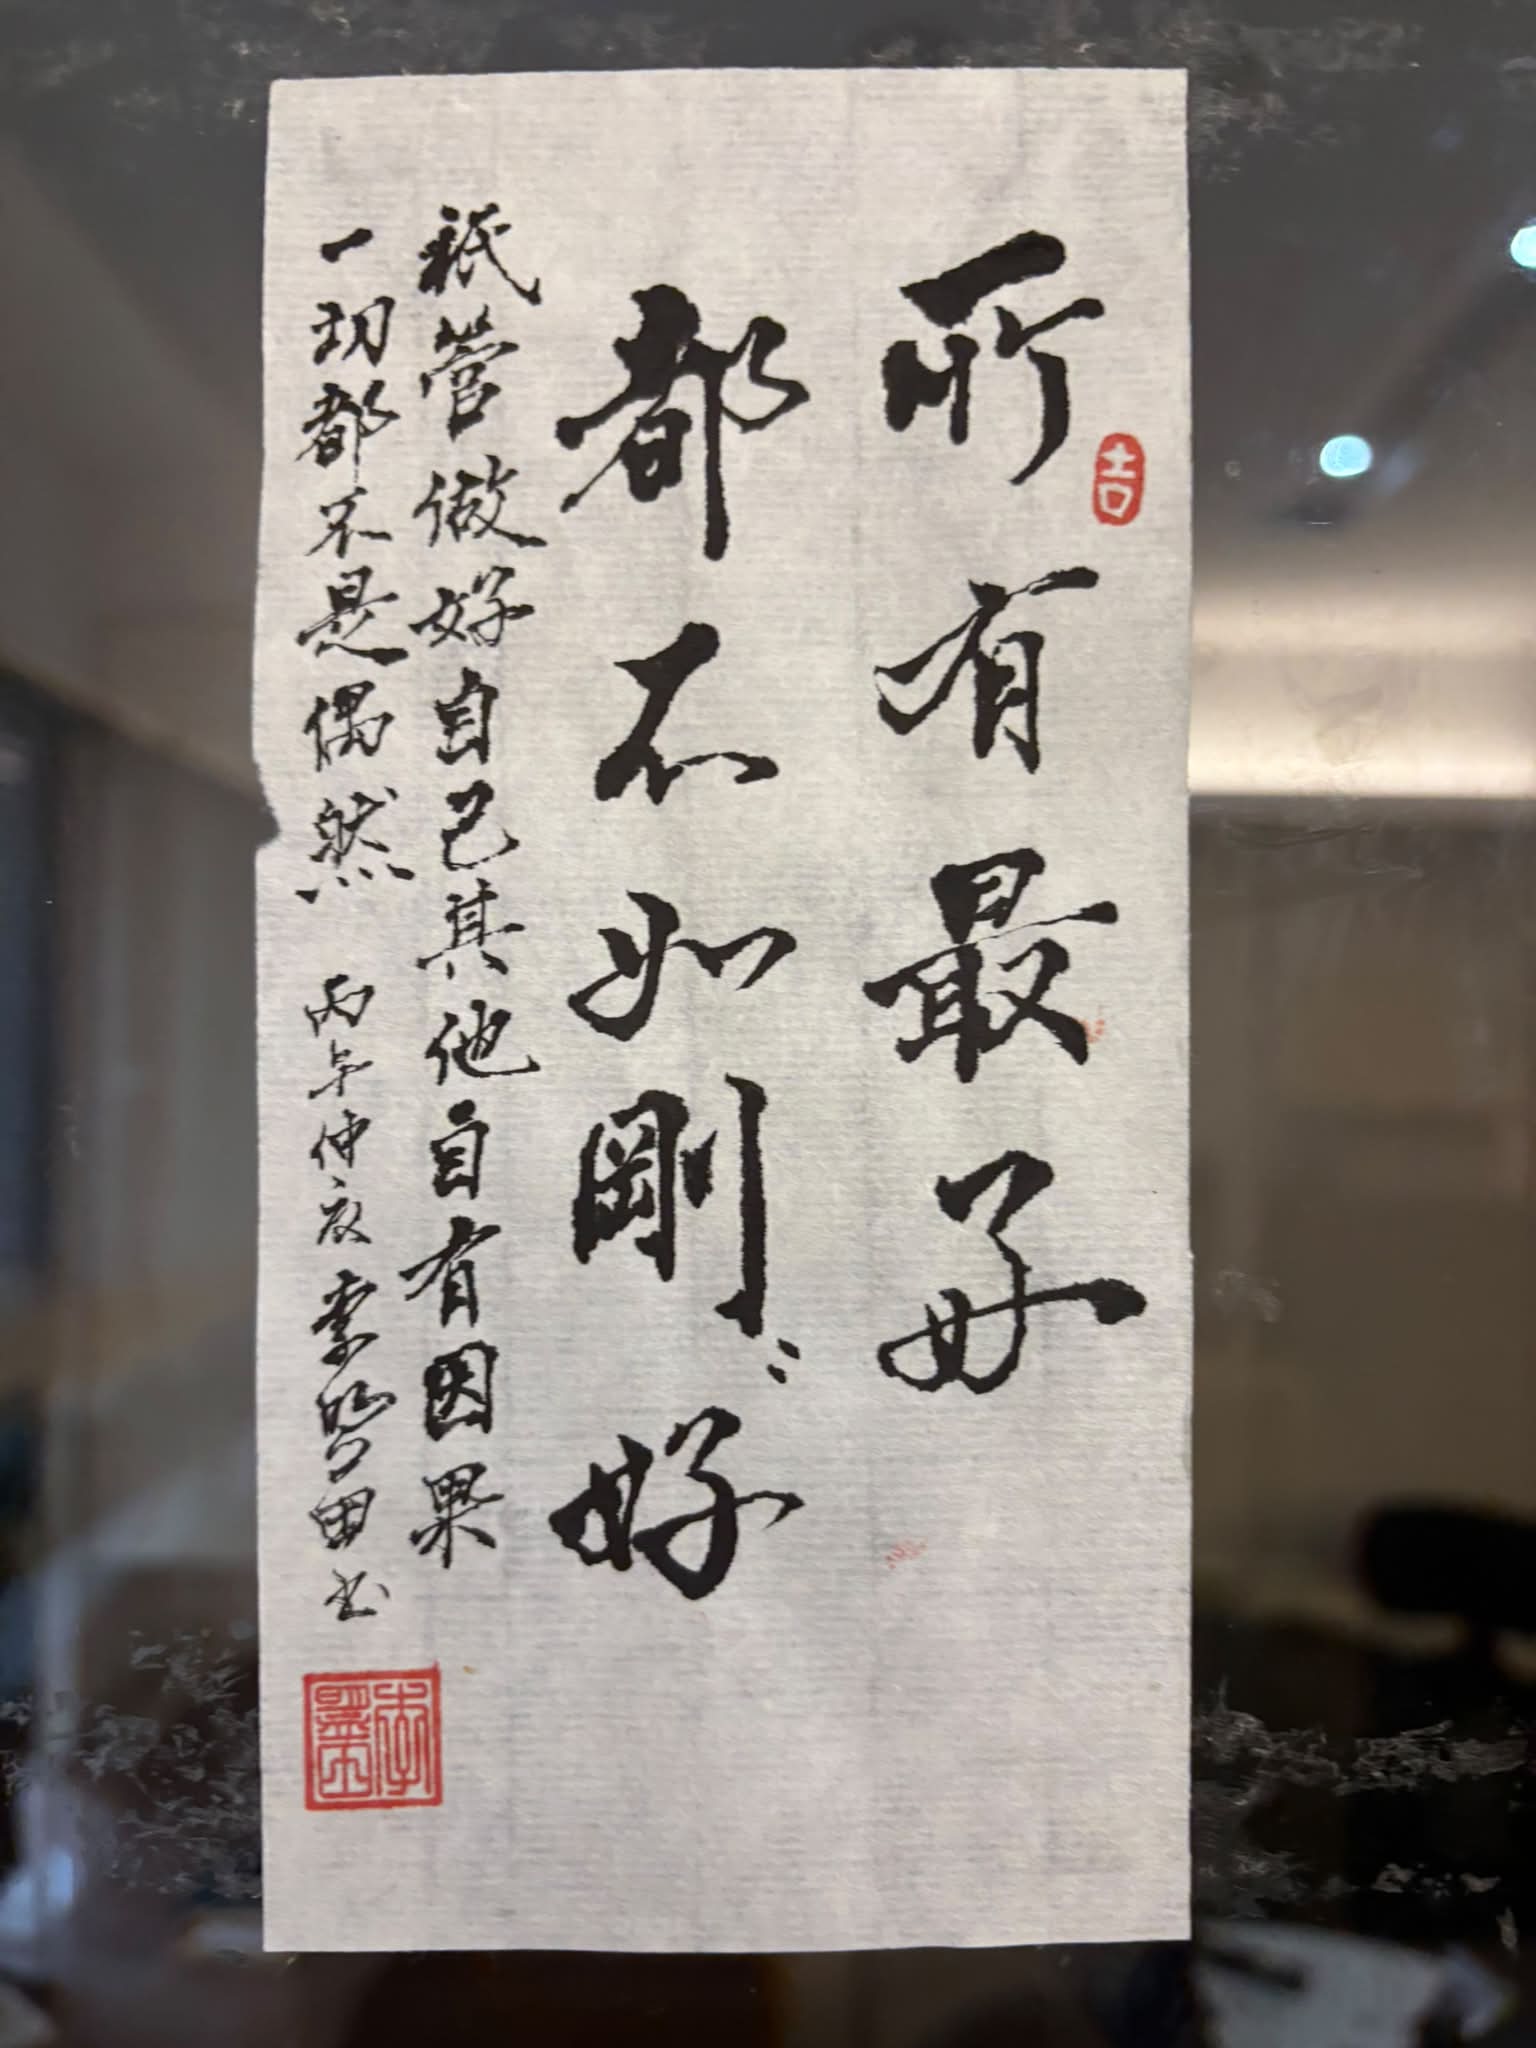 所有最好
吉
都不如剛〻好
祇管做好自己其他自有因果
一切都不是偶然 丙午仲夏 李 田书